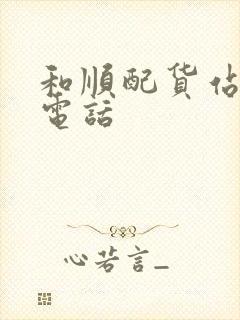 和順配货佔
電話
心若言_